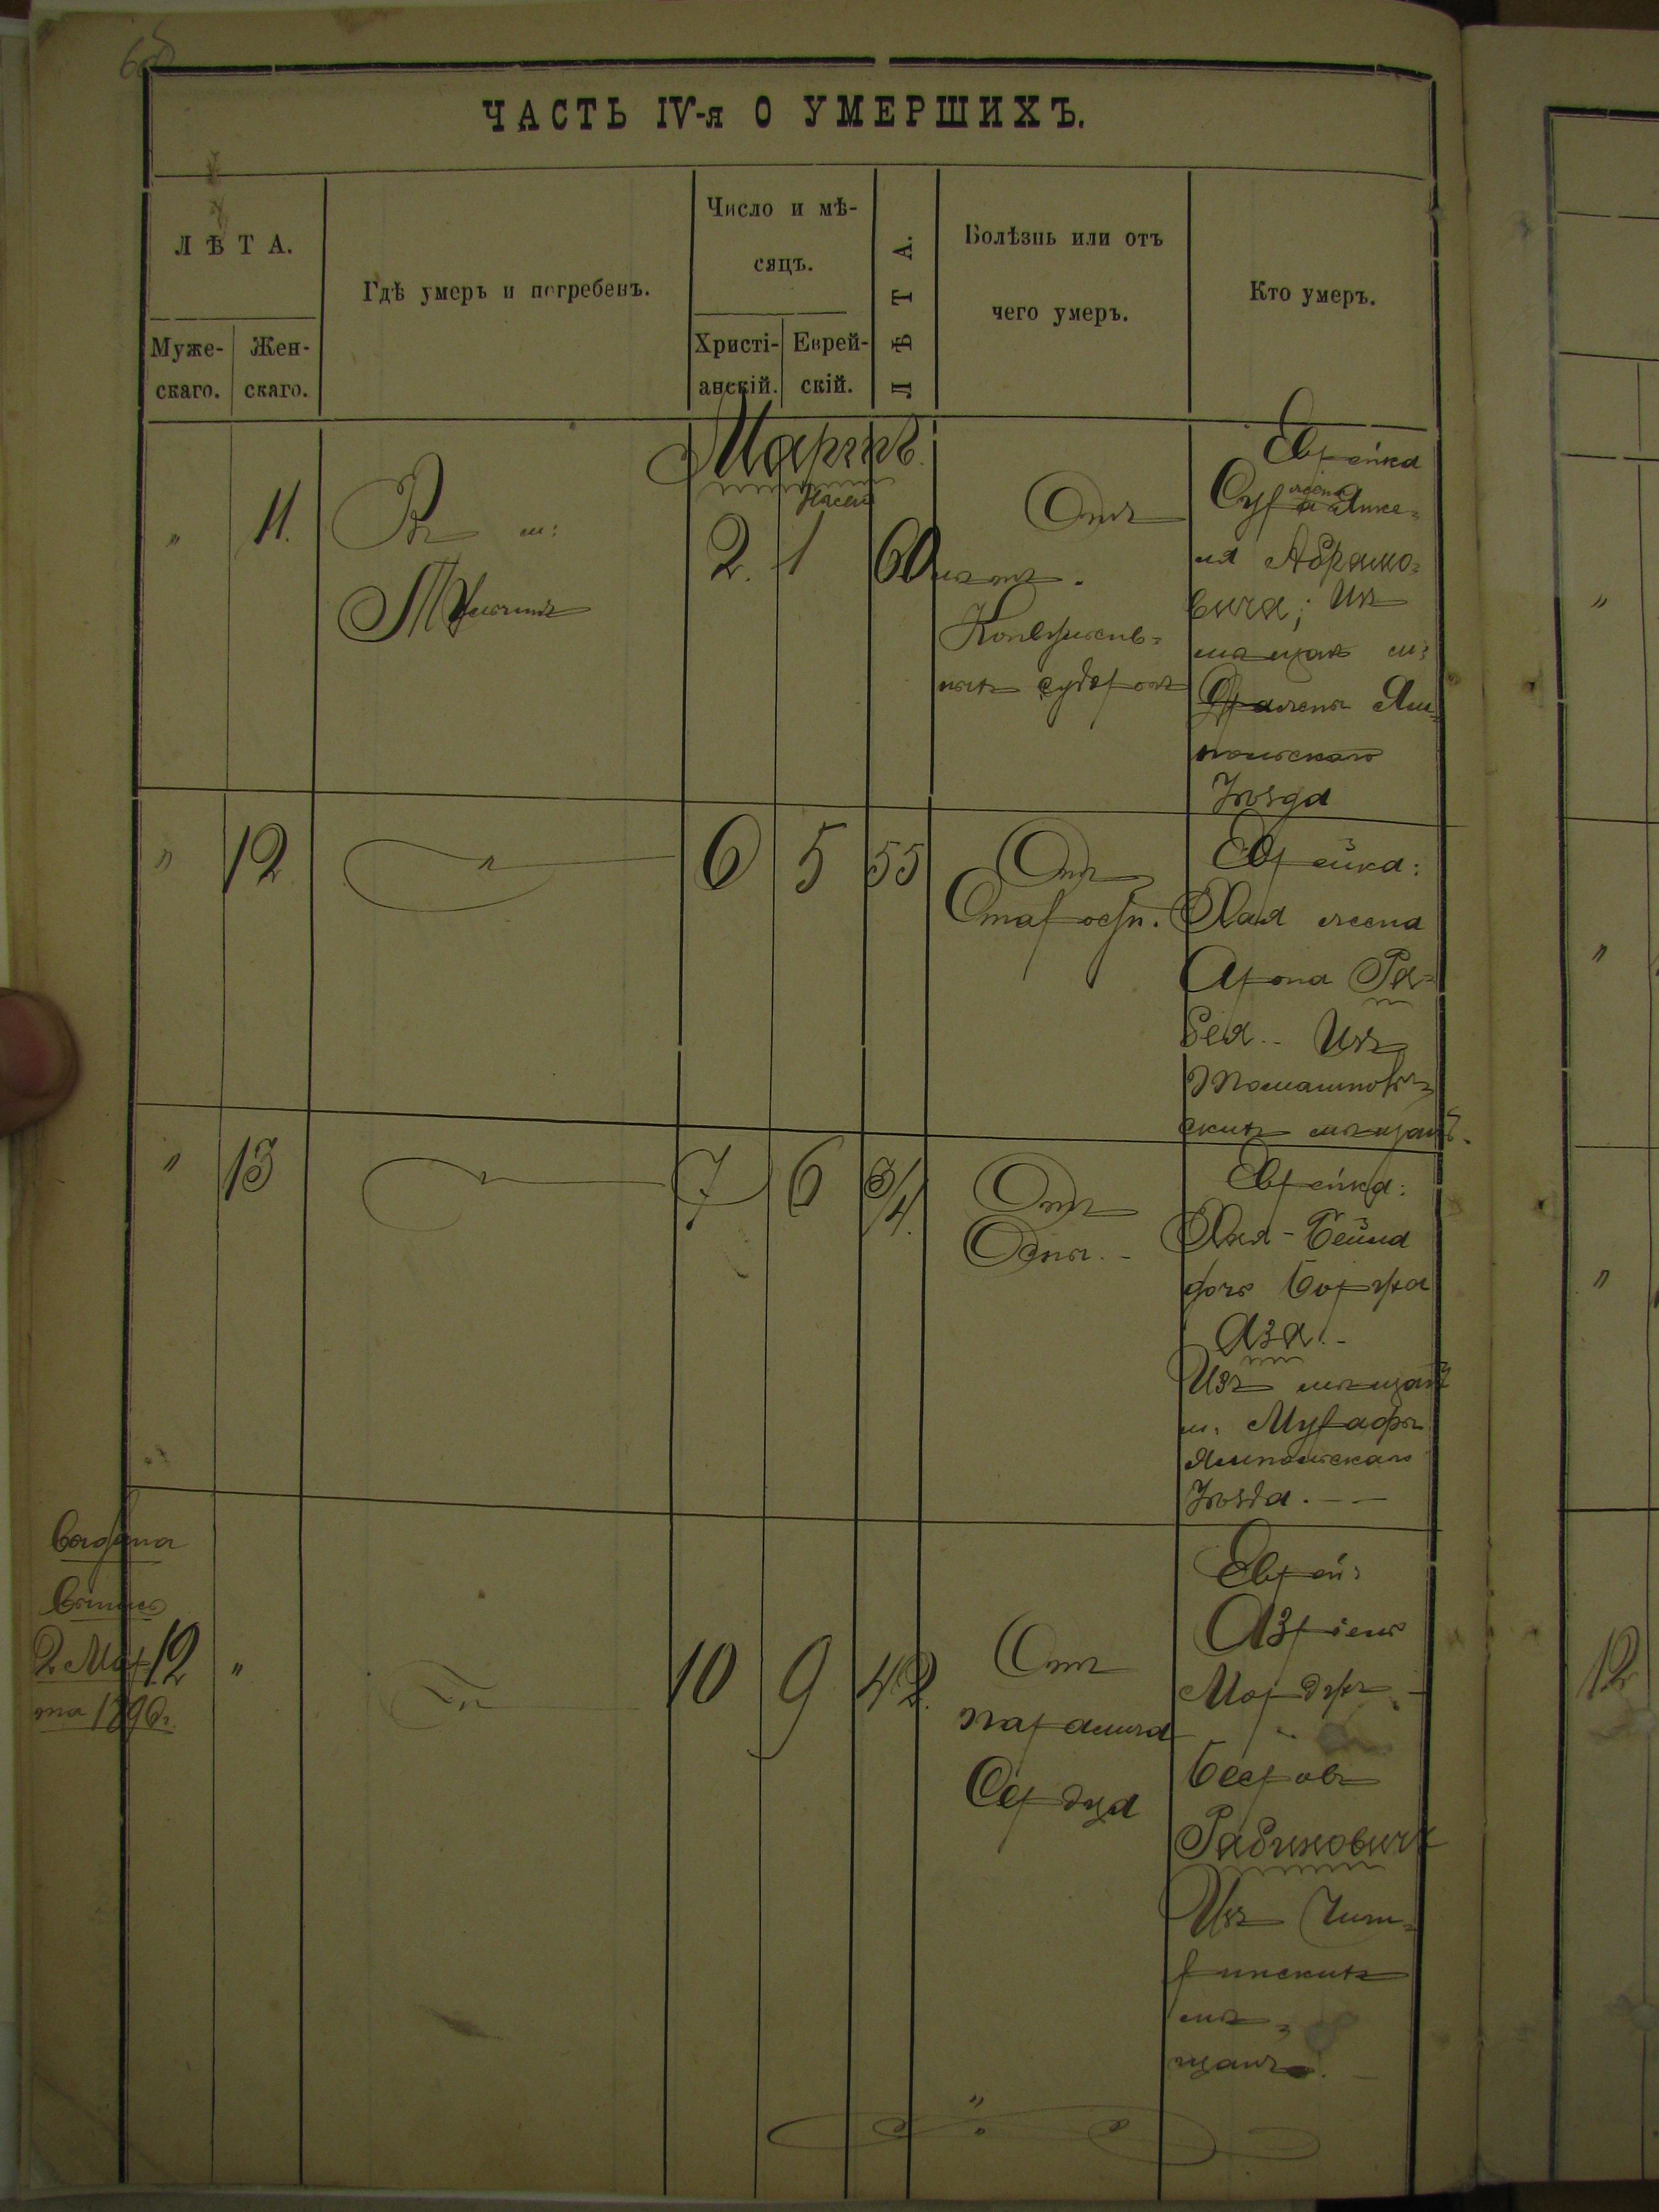 ЧАСТЬ IV-я О УМЕРШИХЪ.
ЛѢТА.
Муже-
скаго.
Жен-
скаго.
Гдѣ умеръ и погребенъ.
Число и мѣ-
сяцъ.
Христі-
анскій.
Еврей-
скій.
ЛѢТА.
Болѣзнь или отъ
чего умеръ.
Кто умеръ.
Мартъ
" 11. Въ м:
2. 1 60
Отъ
Конвульсив-
ныхъ судорогъ
Еврейка
жена Янке-
ля Абрамо-
вича; Изъ
мѣщанъ м:
Ям-
польскаго
Уѣзда
" 12 " 6 5 55
Отъ
Старости.
Еврейка:
Хая жена
Арона Ра-
бея.. Изъ
Томашполь-
скихъ мѣщанъ.
" 13 " 7 6 3/4.
Отъ
Оспы.-
Еврейка:
Хая-Бейла
дочь Боруха
Аза.-
Изъ мѣщанъ
м. Мурафы
Ямпольскаго
Уѣзда.--
Выдана
выпись
2 Мар-
та 1896г.
12 " " 10 9 42.
Отъ
паралича
Сердца
Еврей:
Азріель
Мордухъ
Беровъ
Рабиновичъ
Изъ Чиги-
ринскихъ
мѣ-
щанъ.